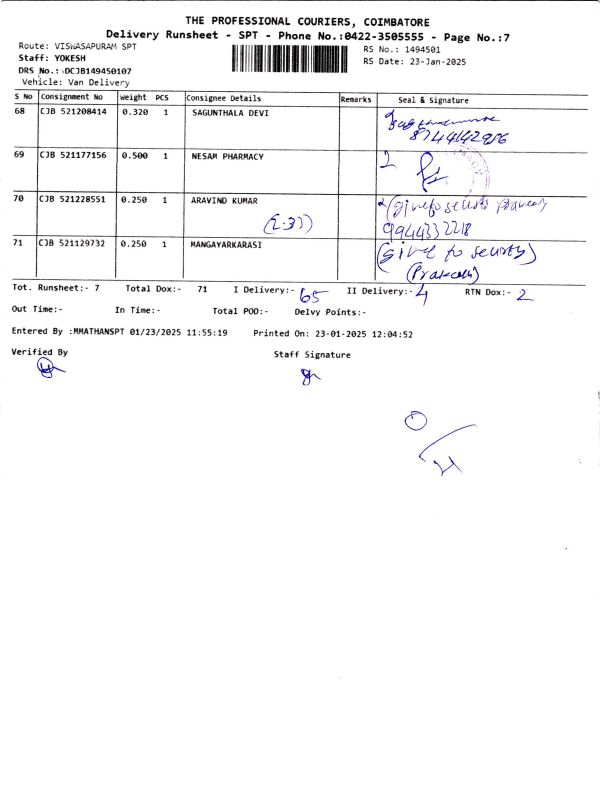 THE PROFESSIONAL COURIERS, COIMBATORE
Delivery Runsheet - SPT - Phone No.:0422-3505555 - Page No.:7
Route: VISWASAPURAM SPT
RS No.: 1494501
Staff: YOKESH
RS Date: 23-Jan-2025
DRS No.: DCJB149450107
Vehicle: Van Delivery
S No Consignment No Weight PCS Consignee Details Remarks Seal & Signature
68 CJB 521208414 0.320 1 SAGUNTHALA DEVI
8744142956
69 CJB 521177156 0.500 1 NESAM PHARMACY 2
70 CJB 521228551 0.250 1 ARAVIND KUMAR
(2.33)
9944332218
71 CJB 521129732 0.250 1 MANGAYARKARASI (Give to security)
Tot. Runsheet:- 7 Total Dox:- 71 I Delivery:- 65 II Delivery:- 4 RTN Dox:- 2
Out Time:- In Time:- Total POD:- Delvy Points:-
Entered By :MMATHANSPT 01/23/2025 11:55:19 Printed On: 23-01-2025 12:04:52
Verified By Staff Signature